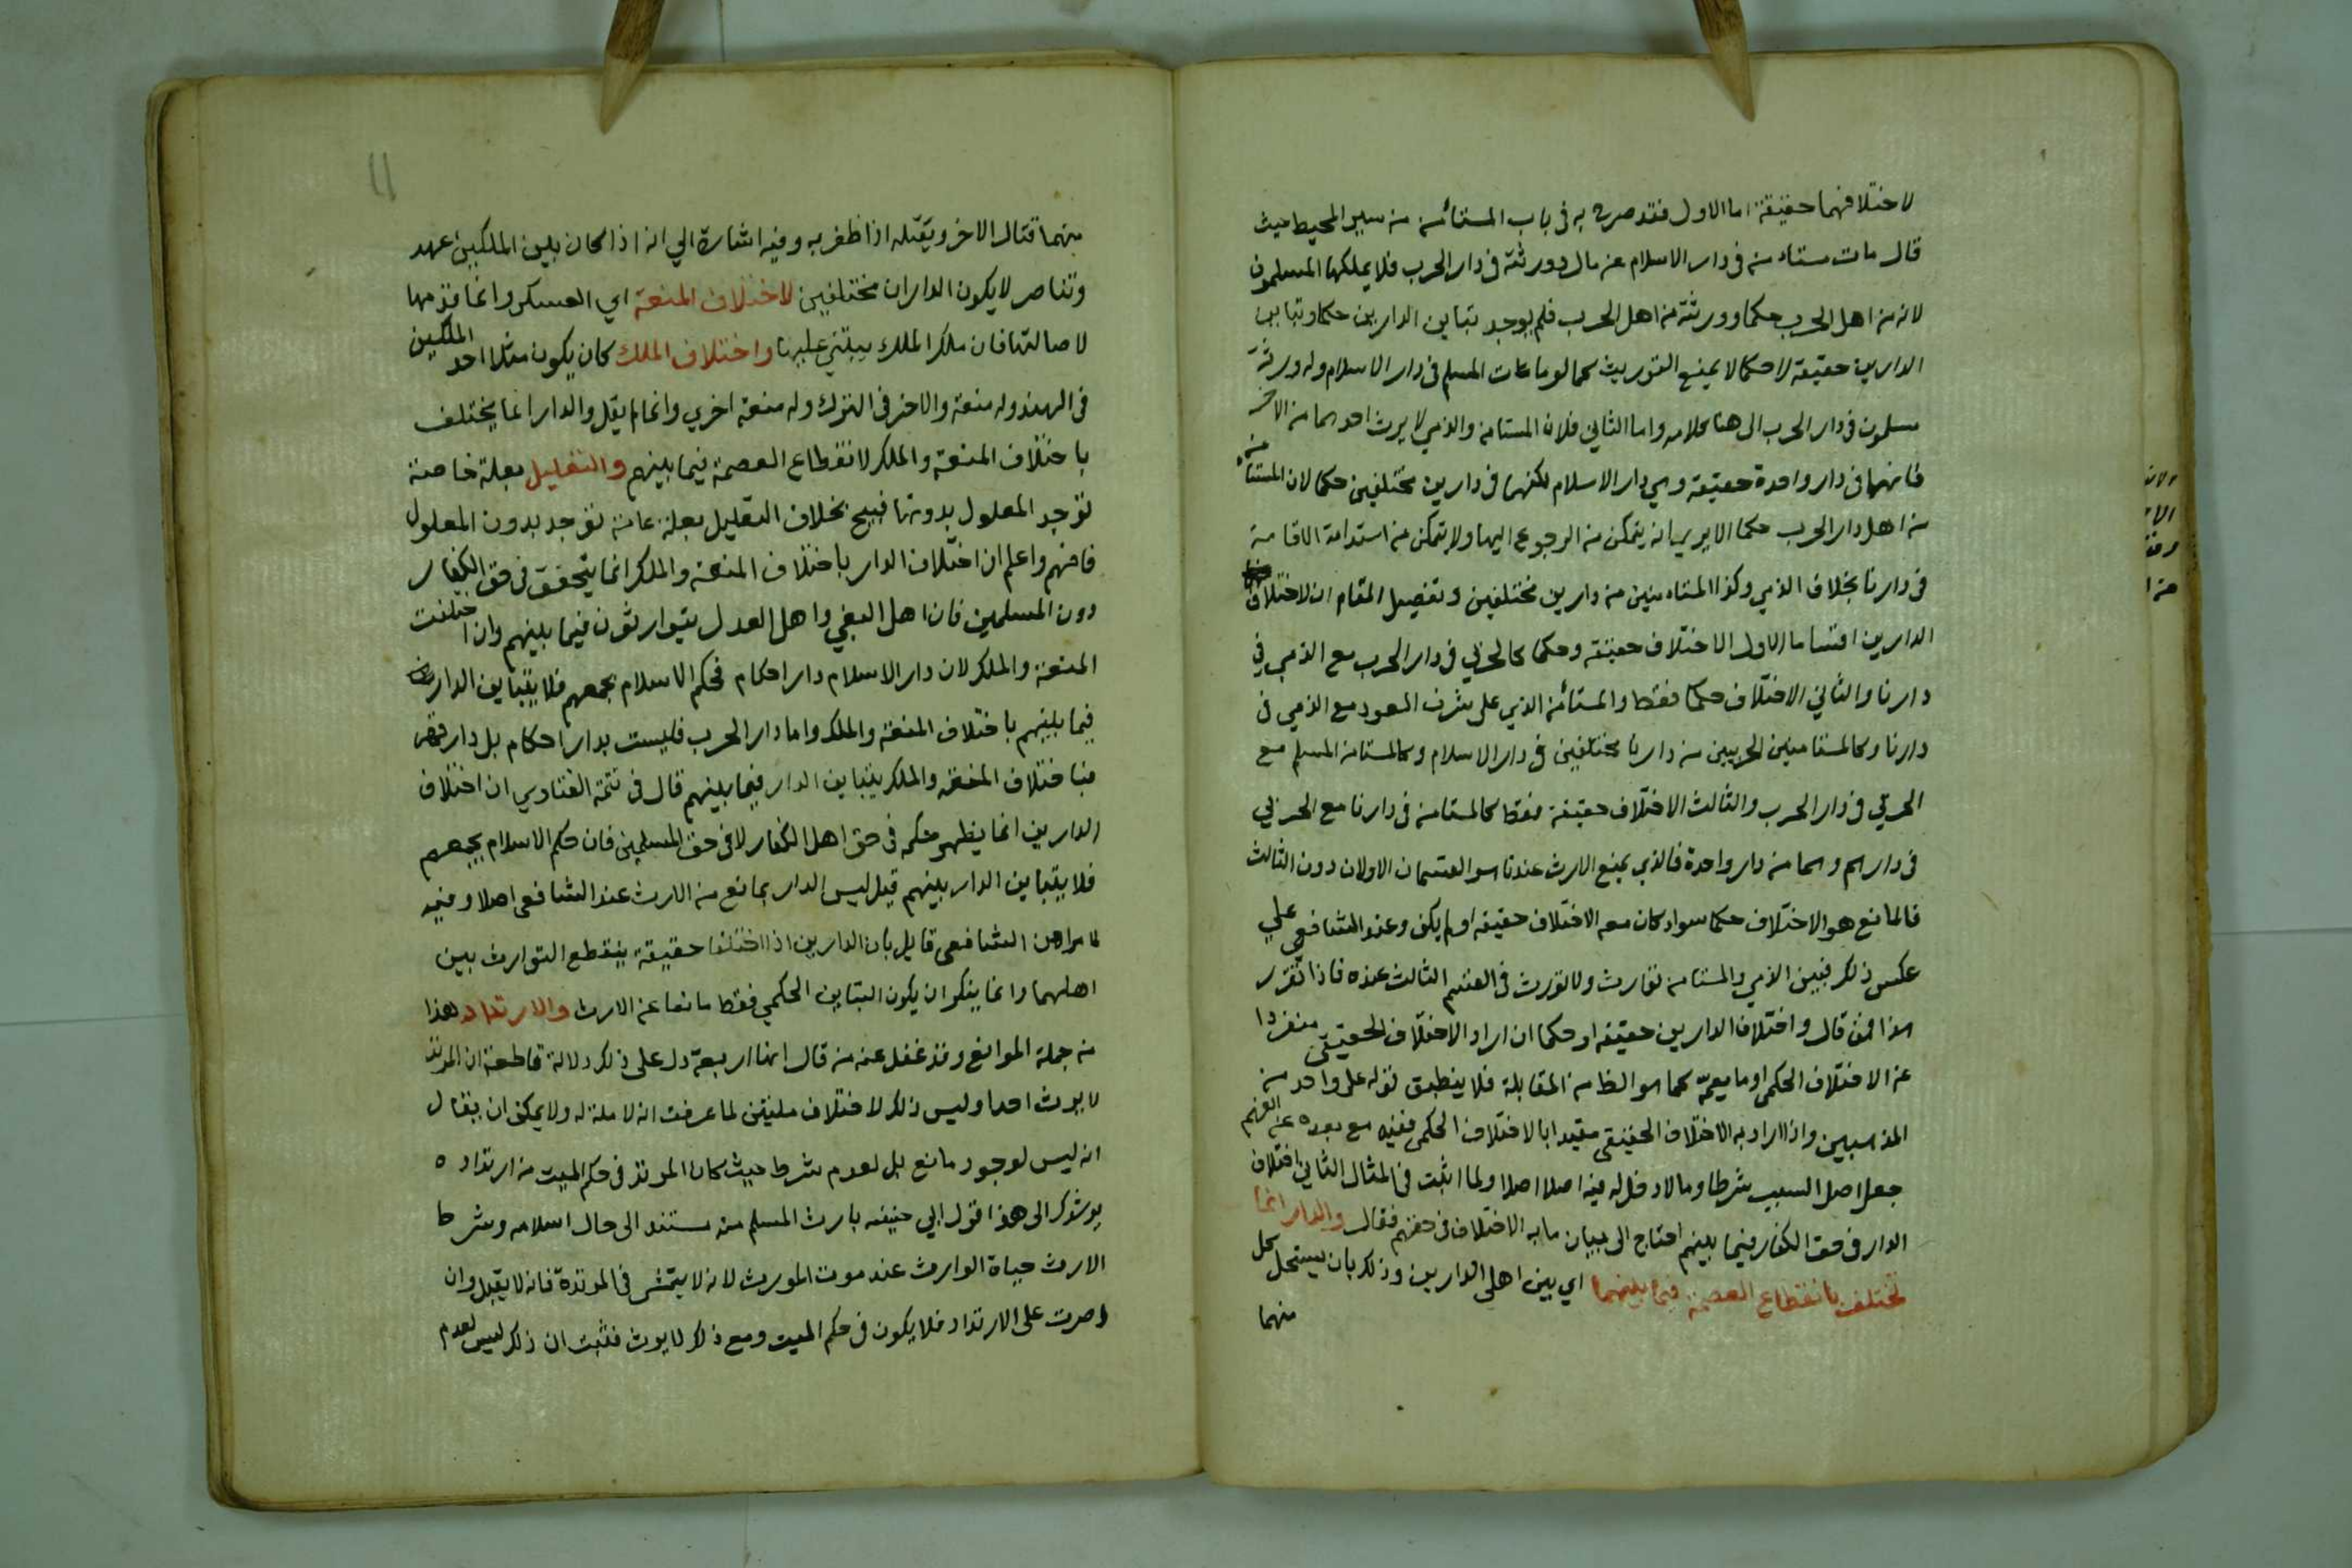 لاختلافهما حقيقة اما الاول فقد صرح به في باب المستأمن من سير المحيط حيث
قال مات مستامن في دار الاسلام عن مال وورثته في دار الحرب فلا يملكها المسلمون
لانه من اهل الحرب حكما وورثته من اهل الحرب فلم يوجد تباين الدارين حكما وتباين
الدارين حقيقة لا حكما لا يمنع التوريث كما لو مات المسلم في دار الاسلام وله ورثة
مسلمون في دار الحرب الى هنا كلامه واما الثاني فلان المستامن والذمي لا يرث احدهما من الآخر
فانهما في دار واحدة حقيقة وهي دار الاسلام لكنهما في دارين مختلفين حكما لان المستأمن
من اهل دار الحرب حكما الا يرى انه يتمكن من الرجوع اليها ولا يتمكن من استدامة الاقامة
في دارنا بخلاف الذمي وكذا المستامنين من دارين مختلفين وتفصيل المقام ان لاختلاف
الدارين اقساما الاول الاختلاف حقيقة وحكما كالحربي في دار الحرب مع الذمي في
دارنا والثاني الاختلاف حكما فقط والمستأمن الذي على شرف العود مع الذمي في
دارنا وكالمستامنين الحربيين من دارنا مختلفين في دار الاسلام وكالمستامن المسلم مع
الحربي في دار الحرب والثالث الاختلاف حقيقة فقط كالمستامن في دارنا مع الحربي
في دارهم وهما من دار واحدة فالذي يمنع الارث عندنا هو القسمان الاولان دون الثالث
فالمانع هو الاختلاف حكما سواء كان معه الاختلاف حقيقه او لم يكن وعند الشافعي على
عكس ذلك فبين الذمي والمستامن توارث ولا تورث في القسم الثالث عنده فاذا تقرر
هذا فمن قال واختلاف الدارين حقيقه او حكما ان اراد الاختلاف الحقيقي منفردا
عن الاختلاف الحكمي او ما يعمه كما هو الظ من المقابلة فلا ينطبق قوله على واحد من
المذهبين وان اراد به الاختلاف الحقيقي مقيدا بالاختلاف الحكمي ففيه مع بعده عن الفهم
جعل اصل السبب شرطا وما لا دخل له فيه اصلا اصلا ولما اثبت في المثال الثاني اختلاف
الدار في حق الكفار فيما بينهم احتاج الى بيان ما به الاختلاف في حقهم فقال والدار انما
تختلف بانقطاع العصمة فيما بينهما اي بين اهلي الدارين وذلك بان يستحل كل
منهما
11
منهما قتال الاخر ويقتله اذا ظفر به وفيه اشارة الي انه اذا كان بين الملكين عهد
وتناصر لا يكون الداران مختلفين لاختلاف المنعة اي العسكر وانما قدمها
لاصالتها فان ملك الملك يبتني عليها واختلاف الملك كان يكون مثلا احد الملكين
في الهند وله منعة والاخر في الترك وله منعة اخري وانما لم يقل والدار انما يختلف
باختلاف المنعة والملك لانقطاع العصمة فيما بينهم والتعليل بعلة خاصة
توجد المعلول بدونها قبيح بخلاف التعليل بعلة عامة توجد بدون المعلول
فافهم واعلم ان اختلاف الدار باختلاف المنعة والملك انما يتحقق في حق الكفار
دون المسلمين فان اهل البغي واهل العدل يتوارثون فيما بينهم وان اختلفت
المنعة والملك لان دار الاسلام دار احكام فحكم الاسلام يجمعهم فلا يتباين الدار
فيما بينهم باختلاف المنعة والملك واما دار الحرب فليست بدار احكام بل دار قهر
فباختلاف المنعة والملك يتباين الدار فيما بينهم قال في تتمة الفتاوي ان اختلاف
الدارين انما يظهر حكمه في حق اهل الكفار لا في حق المسلمين فان حكم الاسلام يجمعهم
فلا يتباين الدار بينهم قيل ليس الدار بمانع من الارث عند الشافعي اصلا وفيه
لما مر من ان الشافعي قايل بان الدارين اذا اختلفا حقيقة ينقطع التوارث بين
اهلهما وانما ينكر ان يكون التباين الحكمي فقط مانعا عن الارث والارتداد هذا
من جملة الموانع وقد غفل عنه من قال انها اربعة دل على ذلك دلالة قاطعة ان المرتد
لا يرث احدا وليس ذلك لاختلاف ملتين لما عرفت انه لا ملة له ولا يمكن ان يقال
انه ليس لوجود مانع بل لعدم شرط حيث كان المرتد في حكم الميت من ارتداده
يرشدك الى هذا قول ابي حنيفه بارث المسلم منه مستند الى حال اسلامه وشرط
الارث حياة الوارث عند موت المورث لانه لا يتمشى في المرتدة فانه لا يقبل وان
اصرت على الارتداد فلا يكون في حكم الميت ومع ذلك لا يرث فثبت ان ذلك ليس لعدم